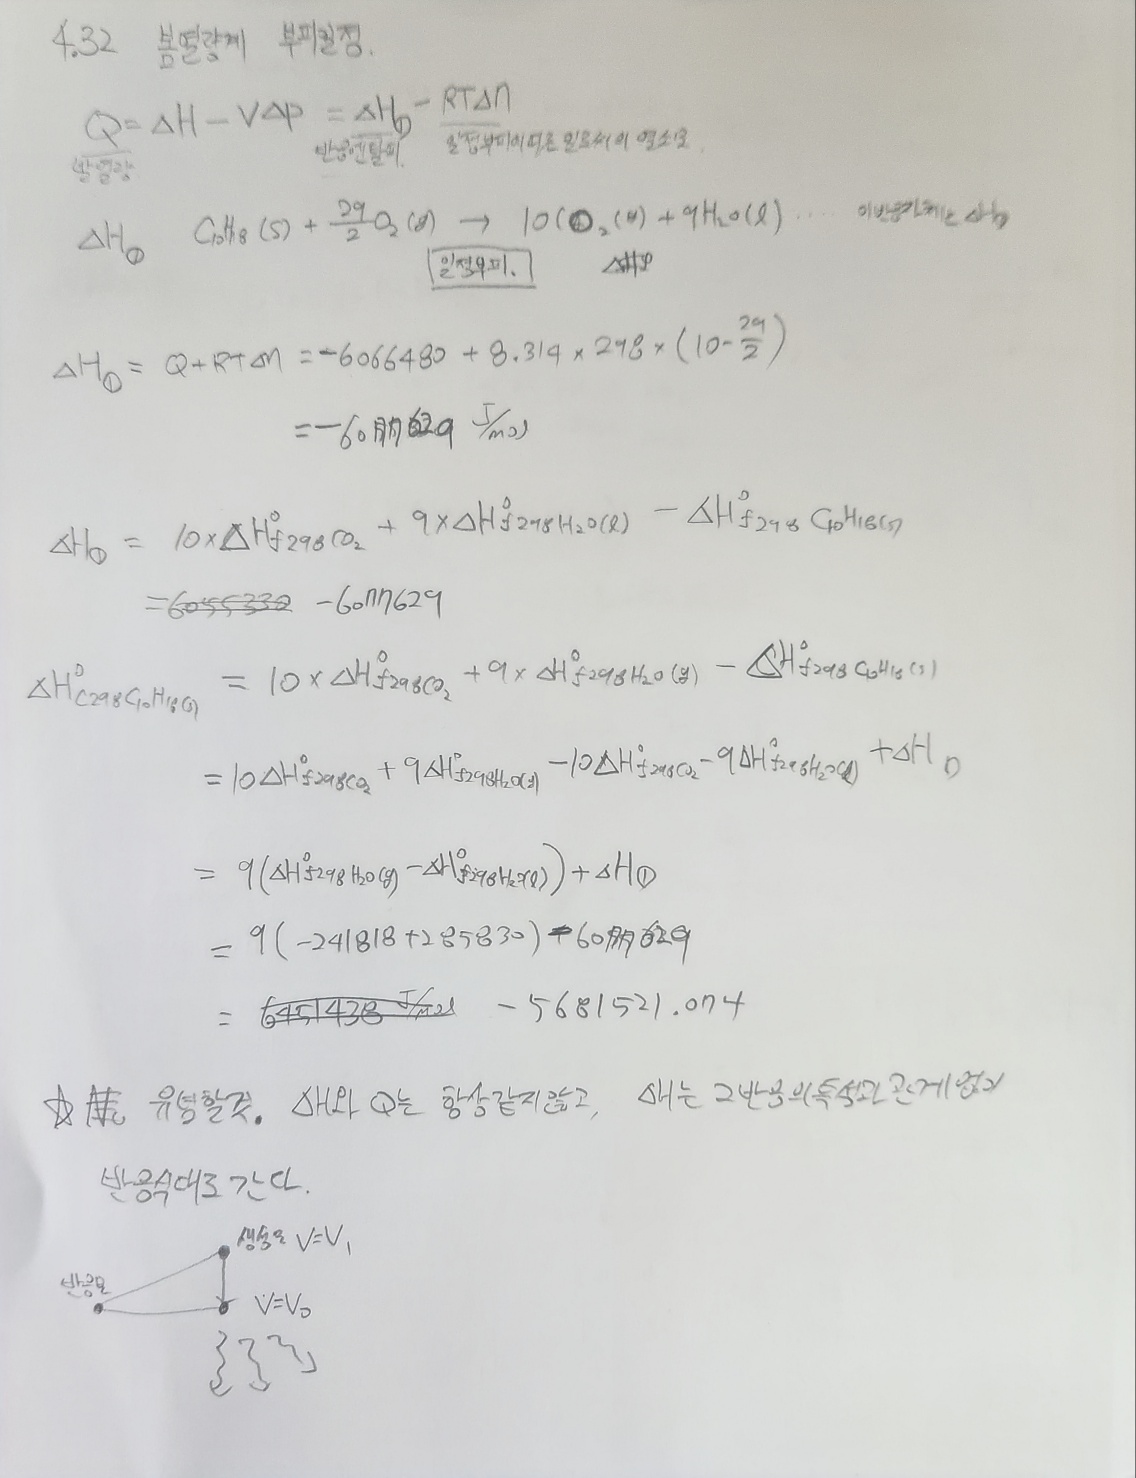 4.32 봄열량계 부피일정.
Q = ΔH - VΔP = ΔH① - RTΔn
발열량 반응엔탈피. 일정부피이므로
ΔH① C10H18(s) + 29/2 O2(g) → 10CO2(g) + 9H2O(l) ····
일정부피.
ΔH① = Q+RTΔn = -6066480 + 8.314 × 298 × (10 - 29/2)
= -6077629 J/mol
ΔH① = 10×ΔH°f298CO2 + 9×ΔH°f298H2O(l) - ΔH°f298 C10H18(s)
= 6055330 -6077629
ΔH°C298C10H18(s) = 10×ΔH°f298CO2 + 9×ΔH°f298H2O(g) - ΔH°f298 C10H18(s)
= 10ΔH°f298CO2 + 9ΔH°f298H2O(g) - 10ΔH°f298CO2 - 9ΔH°f298H2O(l) + ΔH①
= 9(ΔH°f298H2O(g) - ΔH°f298H2O(l)) + ΔH①
= 9(-241818+285830) - 6077629
= 6451438 J/mol -5681521.074
☆ 유념할것. ΔH와 Q는 항상같지않고, ΔH는 그반응의특성과 관계없이
반응식대로 간다.
생성물 V=V1
반응물
V=V0